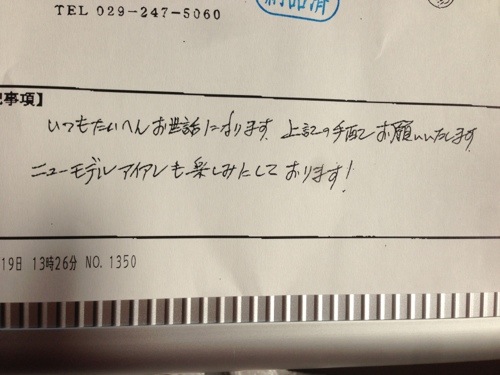 TEL 029-247-5060
納品済
事項】
いつもたいへんお世話になります。上記の手配お願いいたします
ニューモデルアイアンも楽しみにしております!
19日 13時26分 NO. 1350